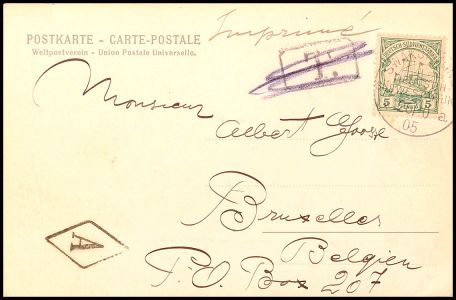 Imprimé
POSTKARTE - CARTE-POSTALE
Weltpostverein - Union Postale Universelle.
T.
5 5
05 a
Monsieur
Albert Goose
Bruxelles
Belgien
P.O. Box 207
A